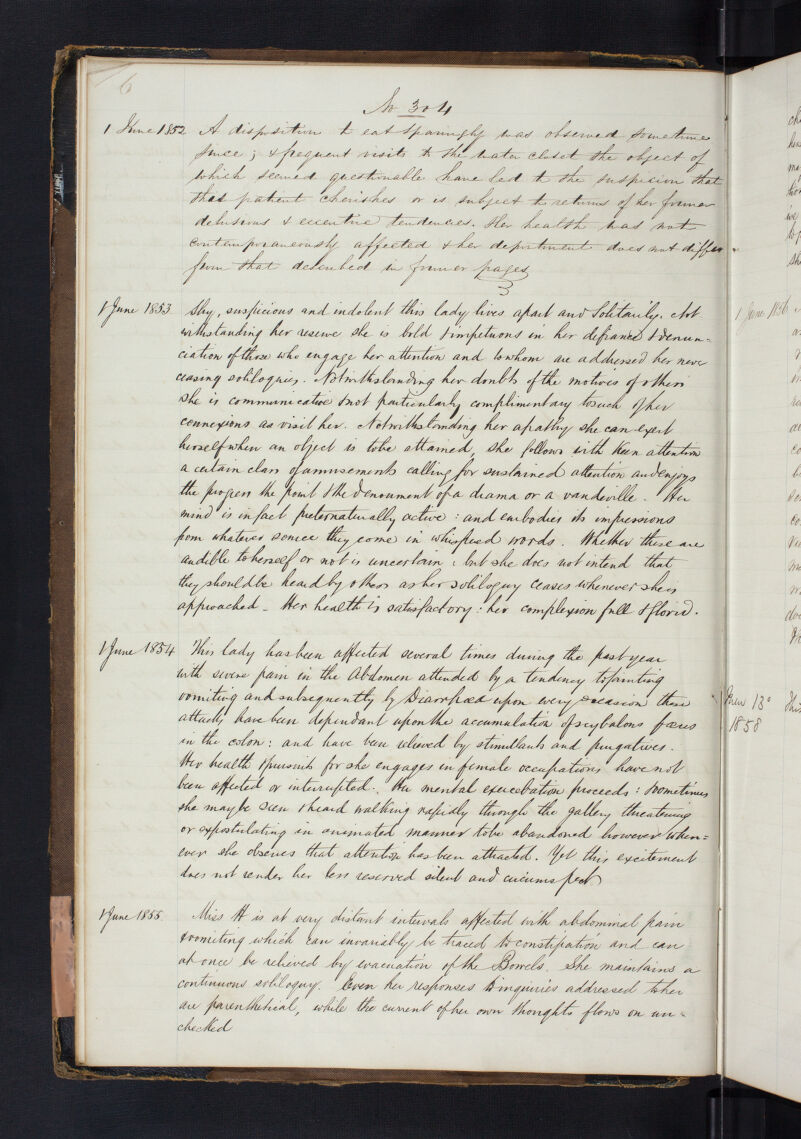 6
No 304
1 June 1852 A disposition to eat sparingly was observed sometime
since; & frequent visits to the water closet the object of
which seemed questionable have led to the suspicion that
that patient cherishes or is subject to returns of her former
delusions & excentric tendencies. Her health was not
contemporaneously affected & her deportment does not differ
from that described in former pages
1 June 1853 Shy, suspicious and indolent this lady lives apart and Solitarily. Not
withstanding her reserve she is bold & impetuous in her defiances & denun-
ciation of those who engage her attention and to whom are addressed her never
ceasing soliloquies. Notwithstanding her doubts of the motives of others
she is communicative & not particularly complimentary to such of her
connexions as visit her. Notwithstanding her apathy she can exert
herself when an object is to be attained, she follows with keen attention
a certain class of amusements calling for sustained attention and enjoys
the progress the point & the denoument of a drama or a vaudeville. Her
mind is in fact preternaturally active: and embodies its impressions
from whatever source they come in whispered words. Whether these are
audible to herself or not is uncertain: but she does not intend that
they should be heard by others as her soliloquy ceases whenever she is
approached - Her health is satisfactory: her complexion full & florid.
1 June 1854 This lady has been affected several times during the past year
with severe pain in the Abdomen attended by a tendency to fainting
vomiting and subsequently by Diarrhœa upon every occasion these
attacks have been dependant upon the accumulation of scybalous fœces
in the colon: and have been relieved by stimulants and purgatives.
Her health & pursuits for she engages in female occupations have not
been affected or interrupted. Her mental exacerbation proceeds: & sometimes
she may be seen & heard walking rapidly through the gallery threatening
or expostulating in animated manner to be abandoned however when=
ever she observes that attention has been attracted. Yet this excitement
does not render her less reserved silent and circumspect
1 June 1855. Miss H is at very distant intervals affected with abdominal pain
& vomiting which can invariably be traced to constipation and can
at once be relieved by evacuation of the Bowels. She maintains a
continuous soliloquy. Even her responses to inquiries addressed to her
are parenthetical, while the current of her own thoughts flows on un=
checked
1 June 1856
13
1858